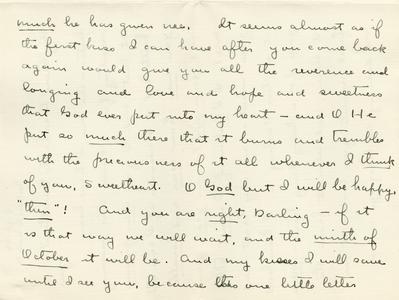 much he has given me. It seems almost as if
the first kiss I can have after you come back
again would give you all the reverence and
longing and love and hope and sweetness
that God ever put into my heart – and O He
put so much there that it burns and trembles
with the preciousness of it all whenever I think
of you, Sweetheart. O God but I will be happy
"then"! And you are right, Darling – if it
is that way we will wait, and the ninth of
October it will be. And my kisses I will save
until I see you, because this one little letter